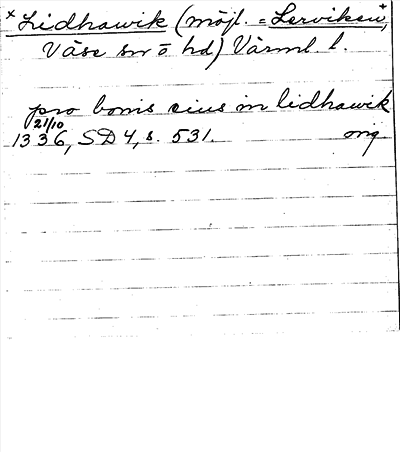 * Lidhawik (möjl. = Lerviken,
Väse sn o hd) Värml l.
pro bonis eius in lidhawik
21/10
1336, SD 4, s. 531. orig